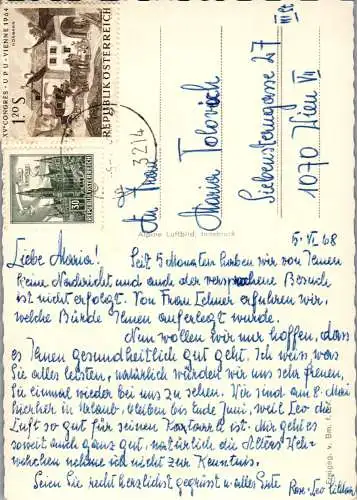 XVᵉ CONGRÈS - U P U - VIENNE 1964
1.20 S
REPUBLIK ÖSTERREICH
30
REPUBLIK ÖSTERREICH
3214
An Frau
Maria Tolovich
Siebensterngasse 27
1070 Wien VII
Alpine Luftbild, Innsbruck
5. VI. 68
Liebe Maria!
Seit 5 Monaten haben wir von Ihnen
keine Nachricht und auch der versprochene Besuch
ist nicht erfolgt. Von Frau Lehner erfuhren wir,
welche Bürde Ihnen auferlegt wurde.
Nun wollen wir nur hoffen, dass
es Ihnen gesundheitlich gut geht. Ich weiss was
Sie alles leisten, natürlich würden wir uns sehr freuen,
Sie einmal wieder bei uns zu sehen. Wir sind am 8. Mai
hierher in Urlaub, bleiben bis Ende Juni, weil Leo die
Luft so gut für seinen Katarrh ist. Mir geht es
soweit auch ganz gut, natürlich die Alters Weh-
wehchen nehme ich nicht zur Kenntnis.
Seien Sie recht herzlichst gegrüsst u. alles Gute
Rosa u. Leo